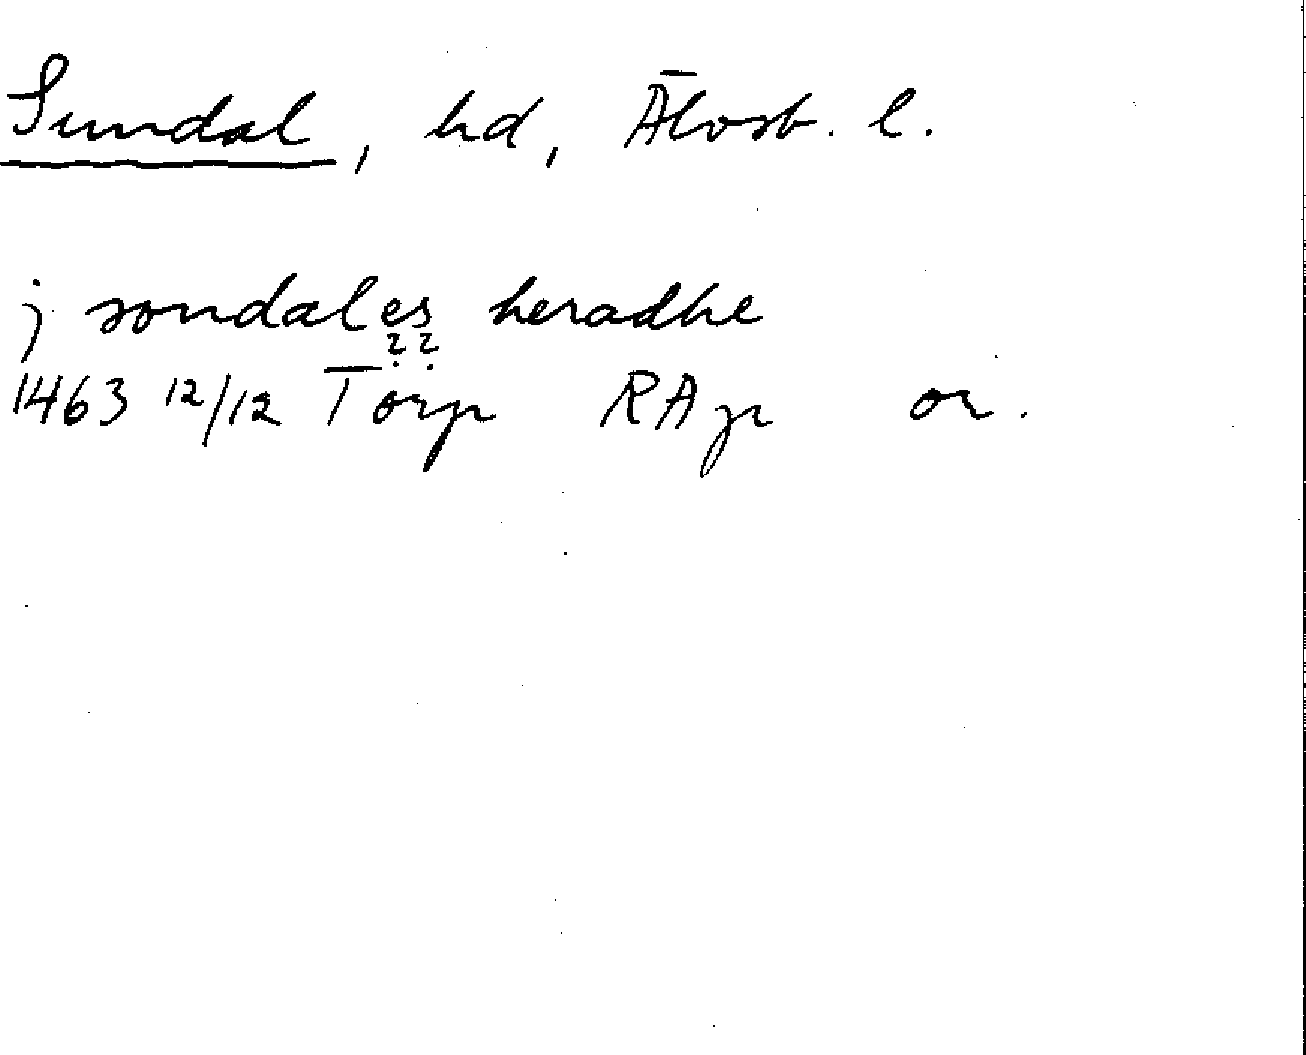 Sundal, hd, Älvsb. l.
j sondales heradhe
? ?
1463 12/12 Torp RAp or.